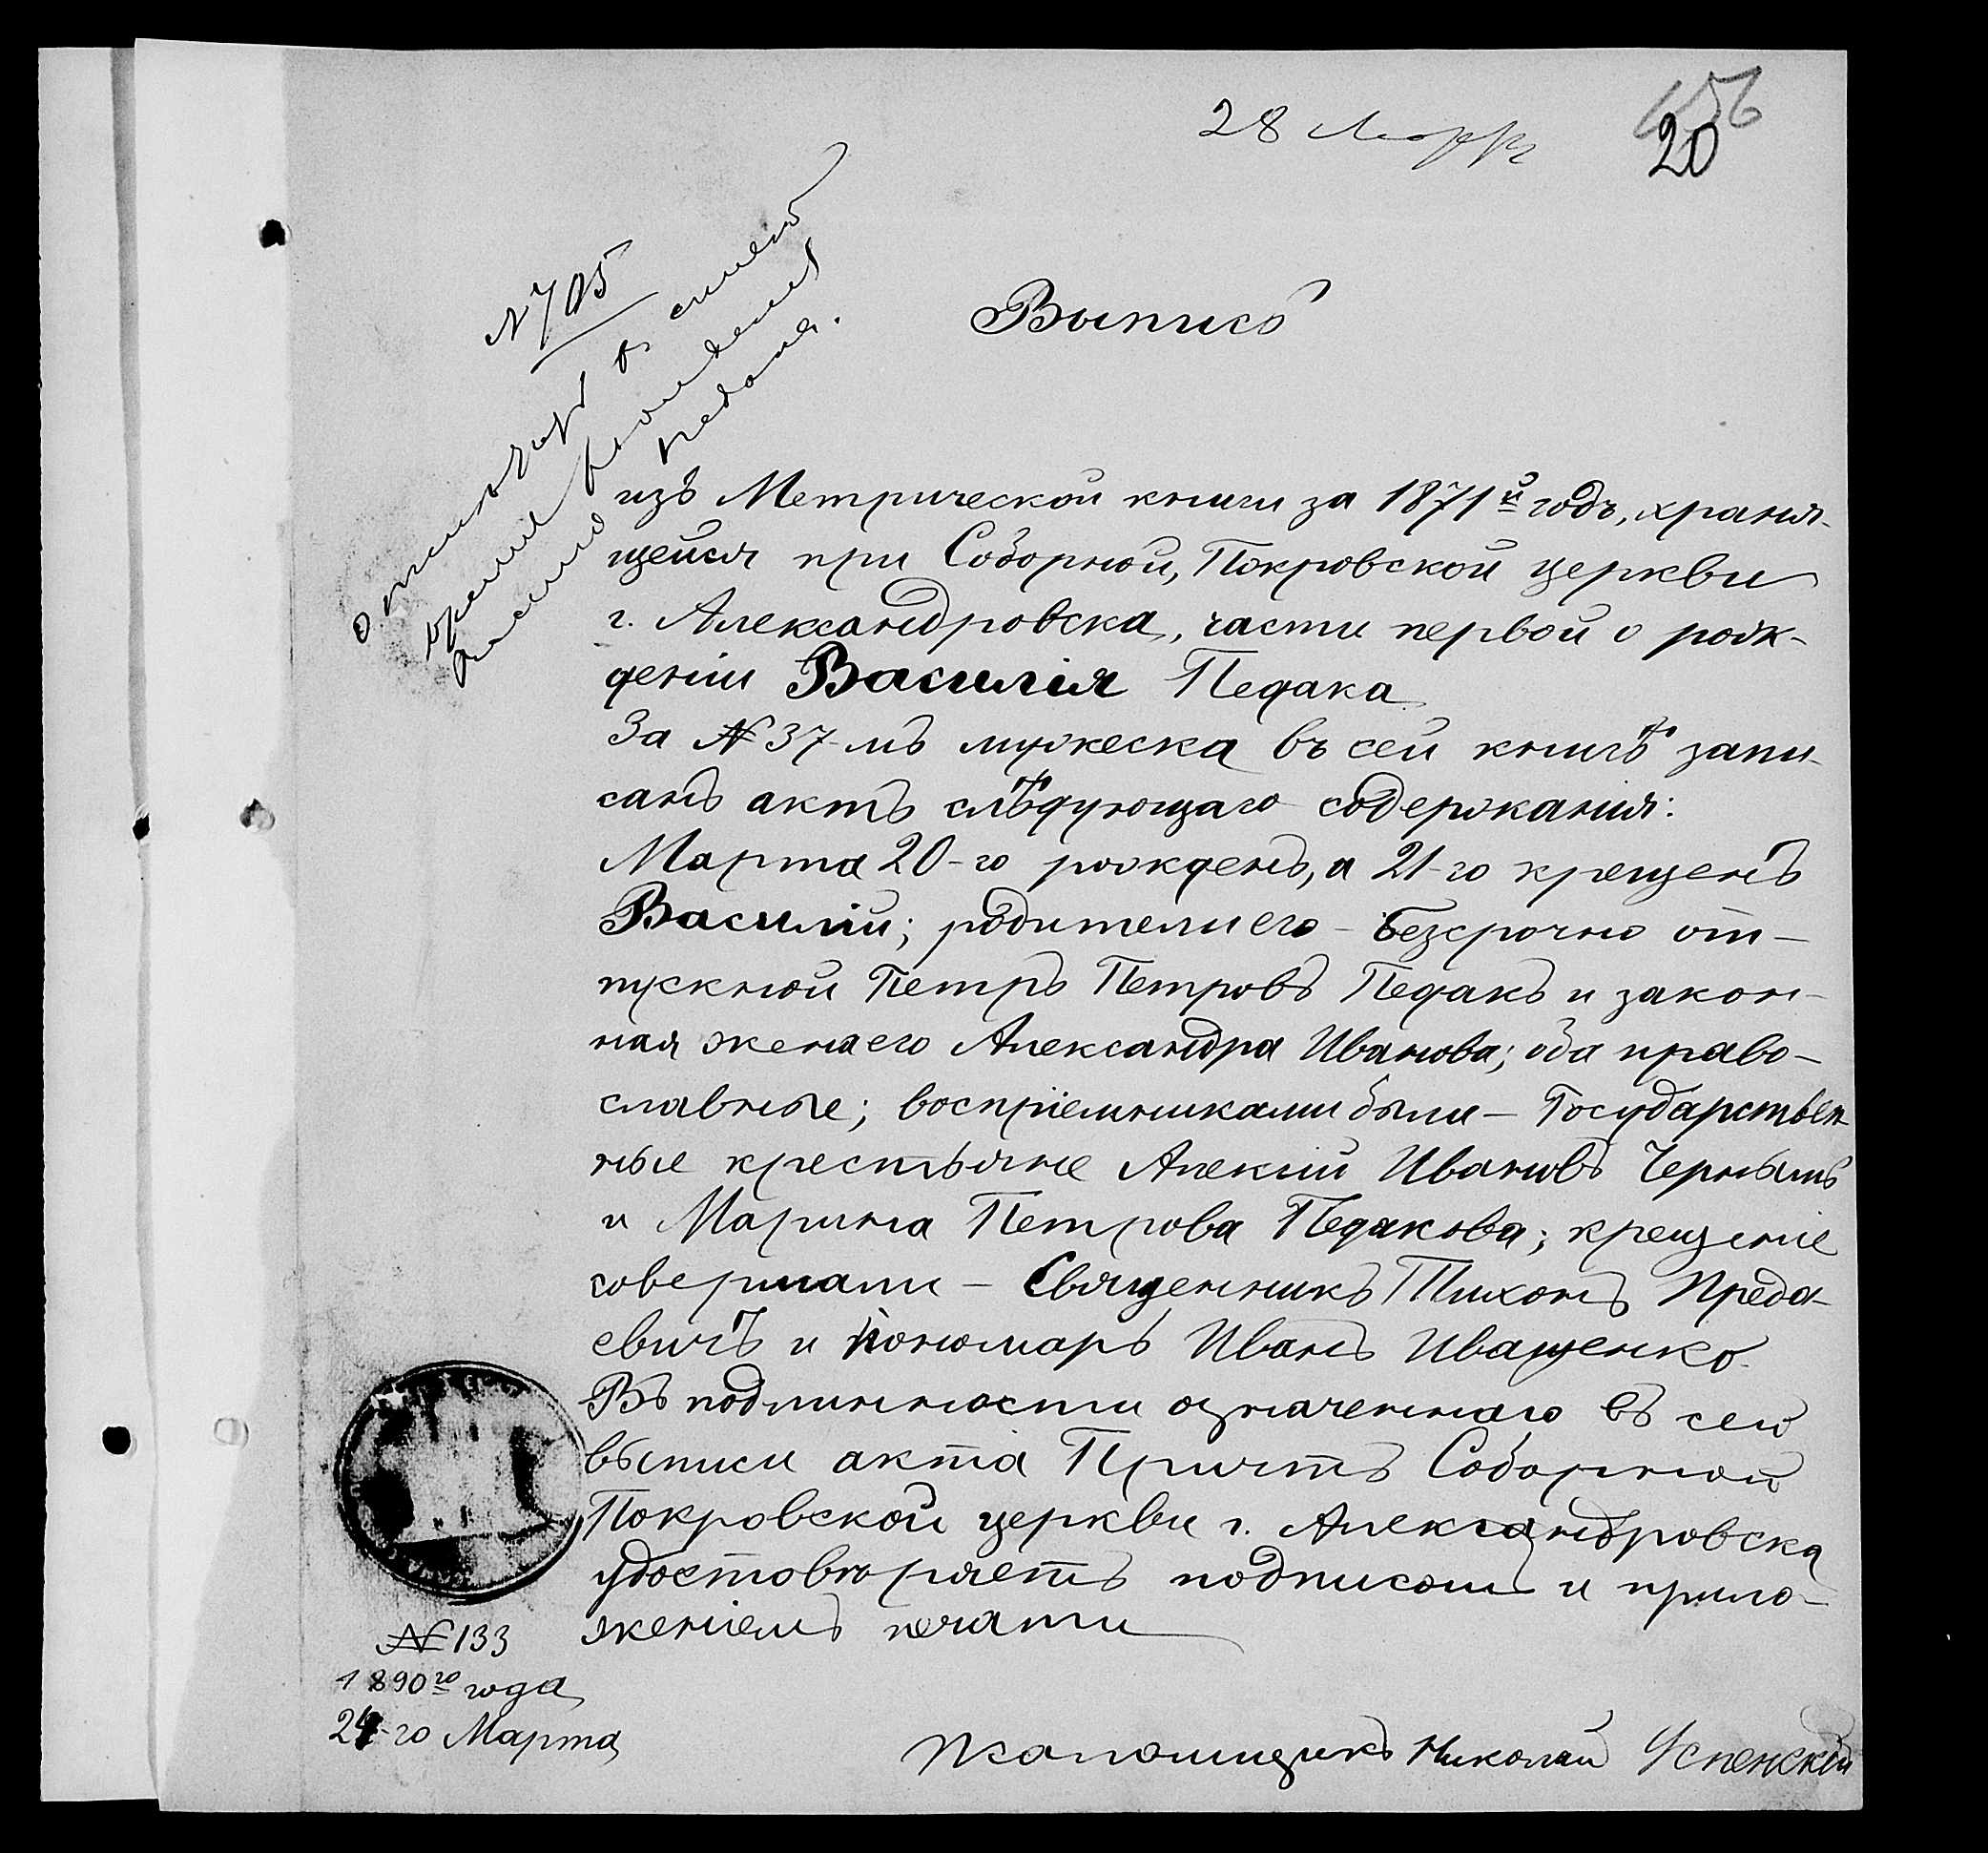 28 Марта
156
20
№ 705
Выпись
изъ Метрической книги за 1871й годъ, храня-
щейся при Соборной, Покровской церкви
г. Александровска, части первой о рож-
деніи Василія Педака
За № 37-мъ мужеска въ сей книгѣ запи-
санъ актъ слѣдующаго содержанія:
Марта 20-го рожденъ, а 21-го крещенъ
Василій; родители его - безсрочно от-
пускной Петръ Петровъ Педакъ и закон-
ная жена его Александра Иванова; оба право-
славные; воспріемниками были - Государствен-
ные крестьяне Алексій Ивановъ Чернышъ
и Марина Петрова Педакова; крещеніе
совершали - Священникъ Тихонъ Преда-
евичъ и пономарь Иванъ Иващенко.
Въ подлинности означеннаго въ сей
выписи акта Причтъ Соборной
Покровской церкви г. Александровска
удостовѣряетъ подписомъ и прило-
женіемъ печати
№ 133
1890го года
24-го Марта
Николай Успенскій